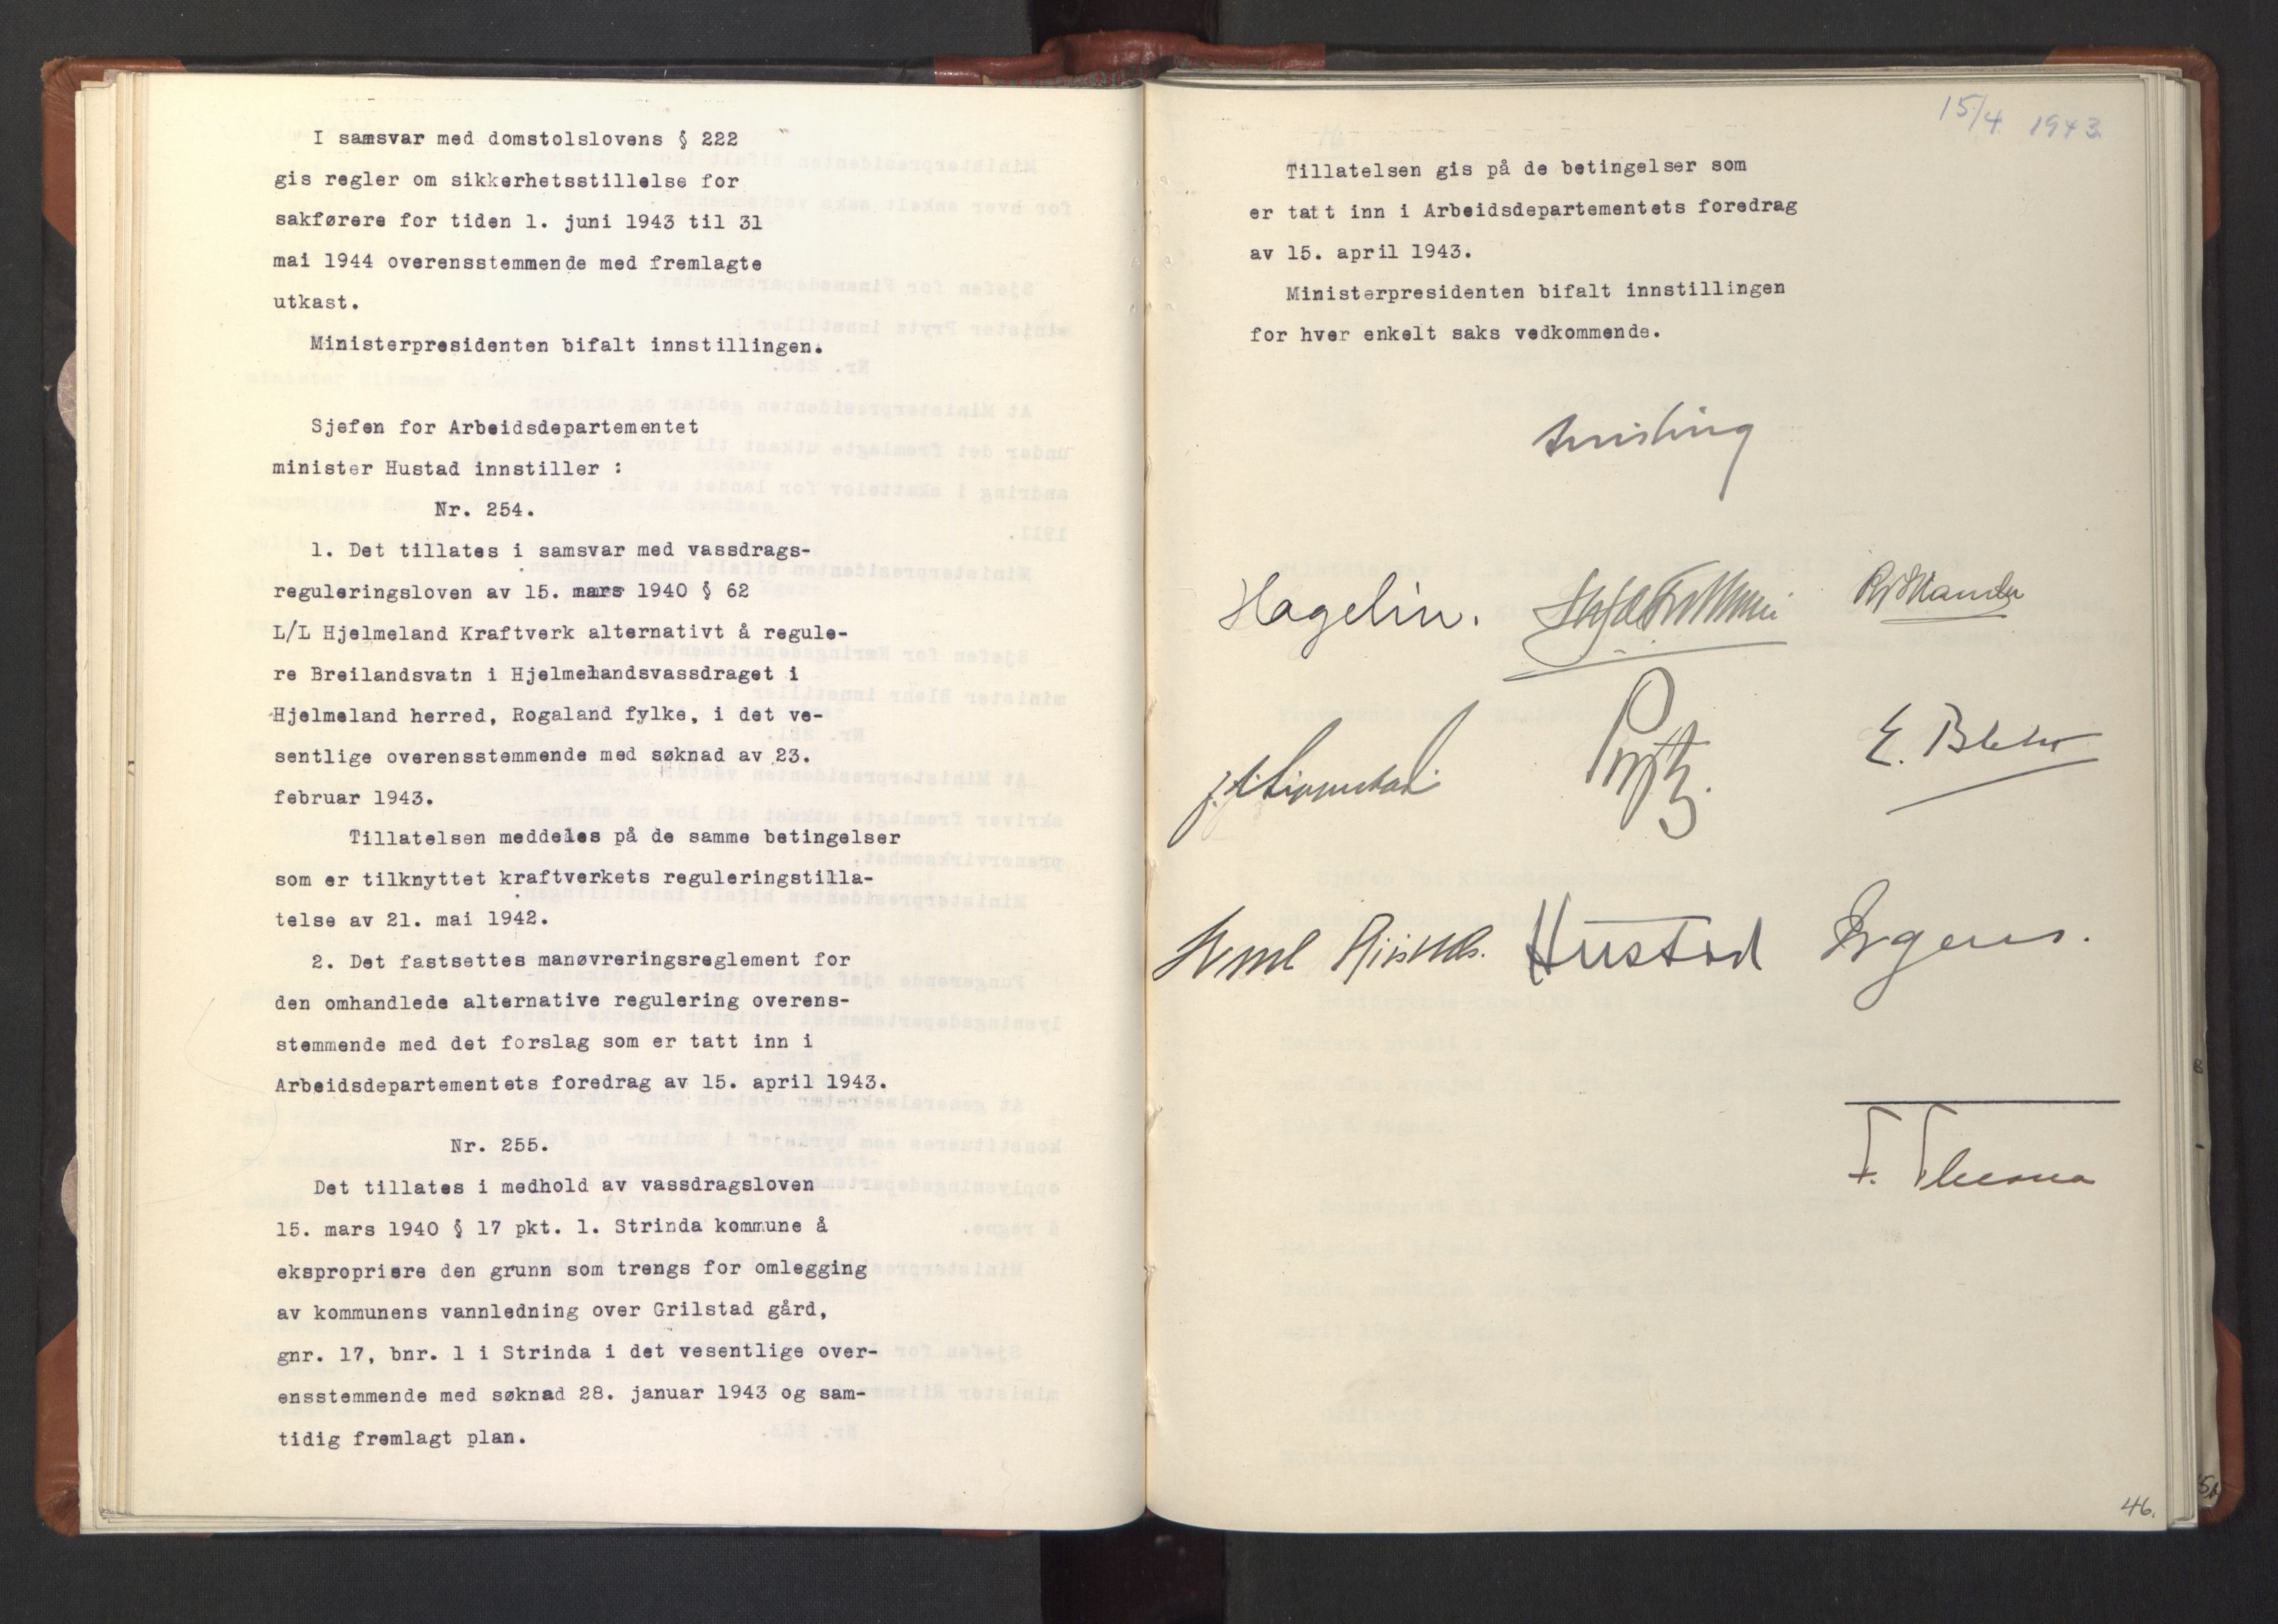 I samsvar med domstolslovens § 222
gis regler om sikkerhetsstillelse for
sakførere for tiden 1. juni 1943 til 31
mai 1944 overensstemmende med fremlagte
utkast.
Ministerpresidenten bifalt innstillingen.
Sjefen for Arbeidsdepartementet
minister Hustad innstiller :
Nr. 254.
1. Det tillates i samsvar med vassdrags-
reguleringsloven av 15. mars 1940 § 62
L/L Hjelmeland Kraftverk alternativt å regule-
re Breilandsvatn i Hjelmelandsvassdraget i
Hjelmeland herred, Rogaland fylke, i det ve-
sentlige overensstemmende med søknad av 23.
februar 1943.
Tillatelsen meddeles på de samme betingelser
som er tilknyttet kraftverkets reguleringstilla-
telse av 21. mai 1942.
2. Det fastsettes manøvreringsreglement for
den omhandlede alternative regulering overens-
stemmende med det forslag som er tatt inn i
Arbeidsdepartementets foredrag av 15. april 1943.
Nr. 255.
Det tillates i medhold av vassdragsloven
15. mars 1940 § 17 pkt. 1. Strinda kommune å
ekspropriere den grunn som trengs for omlegging
av kommunens vannledning over Grilstad gård,
gnr. 17, bnr. 1 i Strinda i det vesentlige over-
ensstemmende med søknad 28. januar 1943 og sam-
tidig fremlagt plan.
15/4 1943
Tillatelsen gis på de betingelser som
er tatt inn i Arbeidsdepartementets foredrag
av 15. april 1943.
Ministerpresidenten bifalt innstillingen
for hver enkelt saks vedkommende.
Quisling
Hagelin.
Prytz.
E. Blehr
Hustad
46.